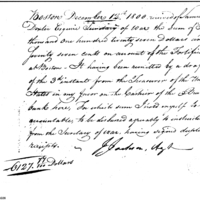 Boston December 12th 1800 received of Samuel
Dexter Esquire Secretary of War the sum of
thousand one hundred & twenty seven dollars and
seventy seven cents on account of the Fortifi
at Boston. It having been remitted by a dra
of the 3d instant from the Treasurer of the Un
States in my favor on the Cashier of the
bank here. For which sum I hold myself
accountable, to be disbursed agreeably to instructi
from the Secretary of War, having signed dupli
receipts.
J Jackson, Agt
6127. Dollars